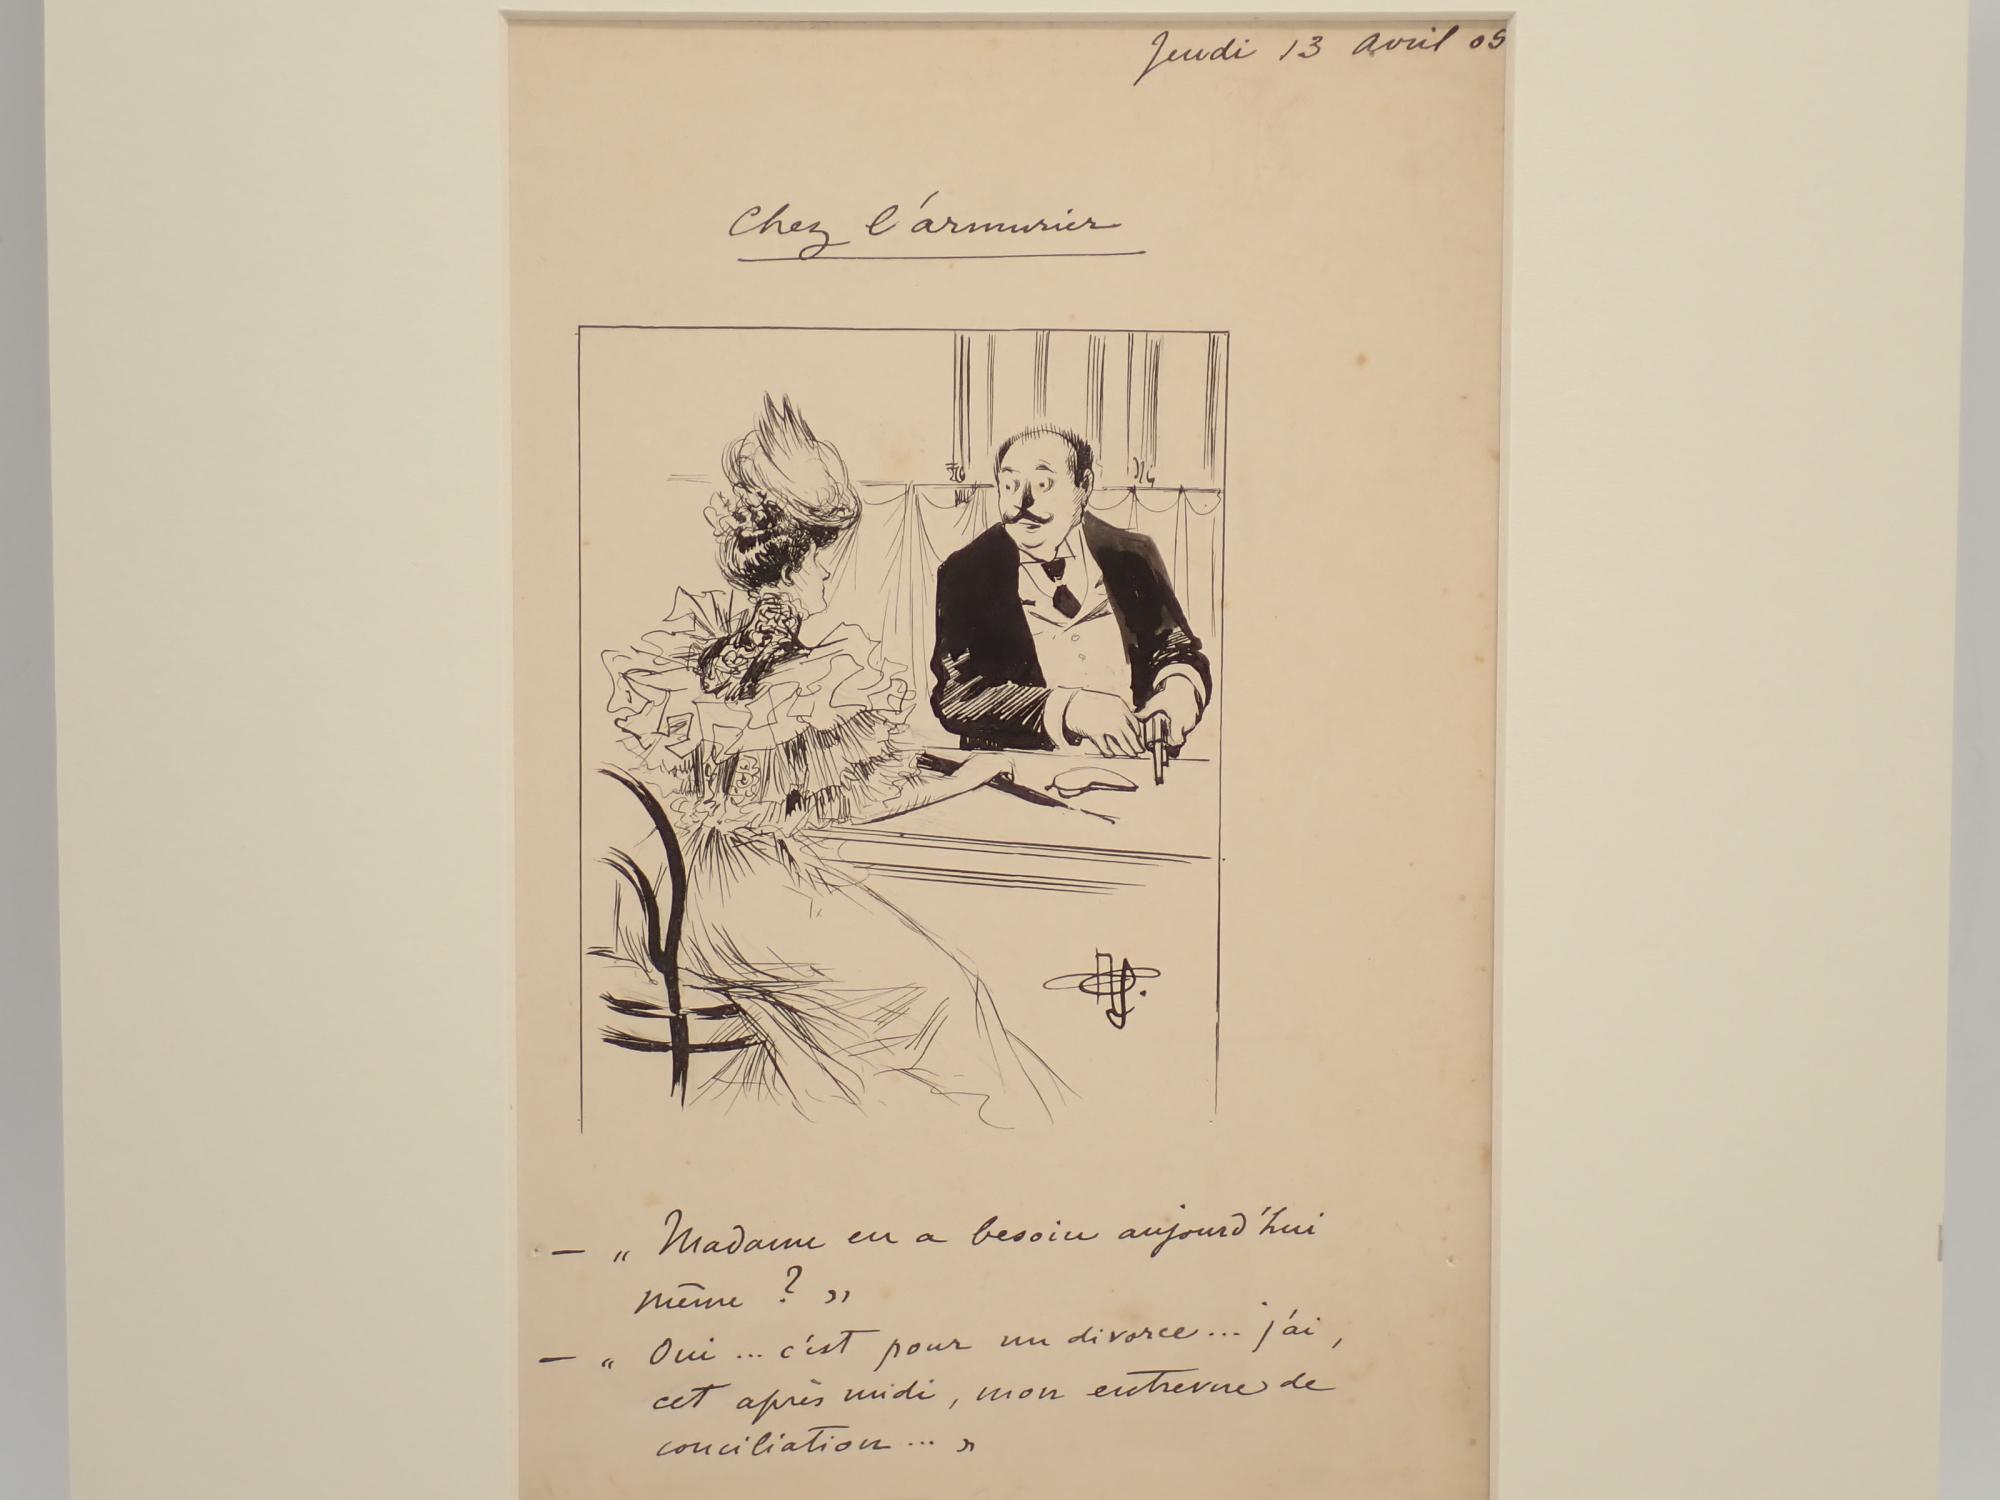 Jeudi 13 avril 05
Chez l'armurier
— „ Madame en a besoin aujourd'hui
même ? »
— „ Oui ... c'est pour un divorce... j'ai,
cet après midi, mon entrevue de
conciliation ... »